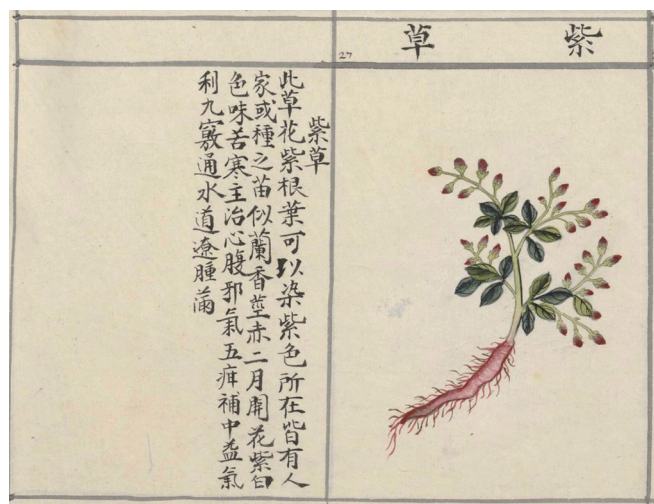 紫草
27
紫草
此草花紫根葉可以染紫色所在皆有人
家或種之苗似蘭香莖赤二月開花紫白
色味苦寒主治心腹邪氣五疸補中益氣
利九竅通水道遼腫滿